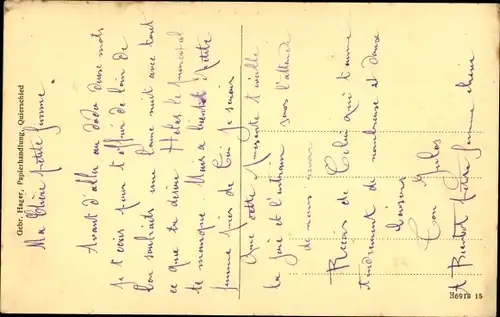 Ma chère petite femme.
Avant d'aller au dodo deux mots
je t'écris pour t'offrir de loin de
bon souhaits une bonne nuit avec tout
ce que tu désire Hélas le principal
te manque. Mais a bientôt petite
femme près de toi Je serais
Que cette présente t'
la joie et l' sans l'attendre
de nous revoir
Reçois de Celui qui t'aime
tendrement de nombreux et doux
baisers
Ton Jules
A Bientôt petite femme chérie
Gebr. Hager, Papierhandlung, Quierschied
36918 15